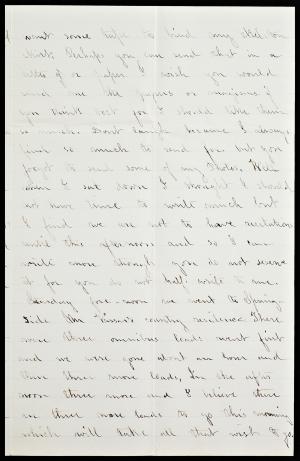 want some tape to bind my
skirt. Perhaps you can send that in a
letter if or paper. I wish you would
send me the papers or
you think best for I should like them
so much. Don't laugh because I always
find so much to send for, but you
forget to send some of my Photos. When
I sat down I thought I should
not have time to write much but
I find we are not to have recitations
until this afternoon and so I can
write more though you do not deserve
it for you do not half write to me.
Tuesday fore-noon we went to Spring
side Mr. Vassar's country residence. There
were three omnibus loads went first
and we were gone about an hour and
then three more loads, In the after
noon three more and I believe there
are three more loads to go this morning
which will take all that wish to go.